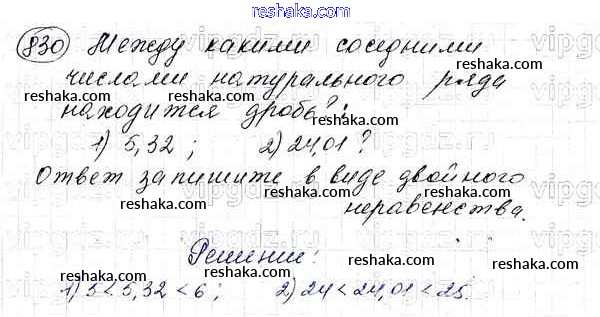 reshaka.com
830 Между какими соседними
reshaka.com
числами натурального ряда
reshaka.com reshaka.com reshaka.com
находится дробь?:
1) 5,32 ; 2) 24,01 ?
reshaka.com reshaka.com
Ответ запишите в виде двойного
reshaka.com reshaka.com reshaka.com
неравенства.
Решение:
reshaka.com reshaka.com
1) 5 < 5,32 < 6 ; 2) 24 < 24,01 < 25.
reshaka.com reshaka.com reshaka.com